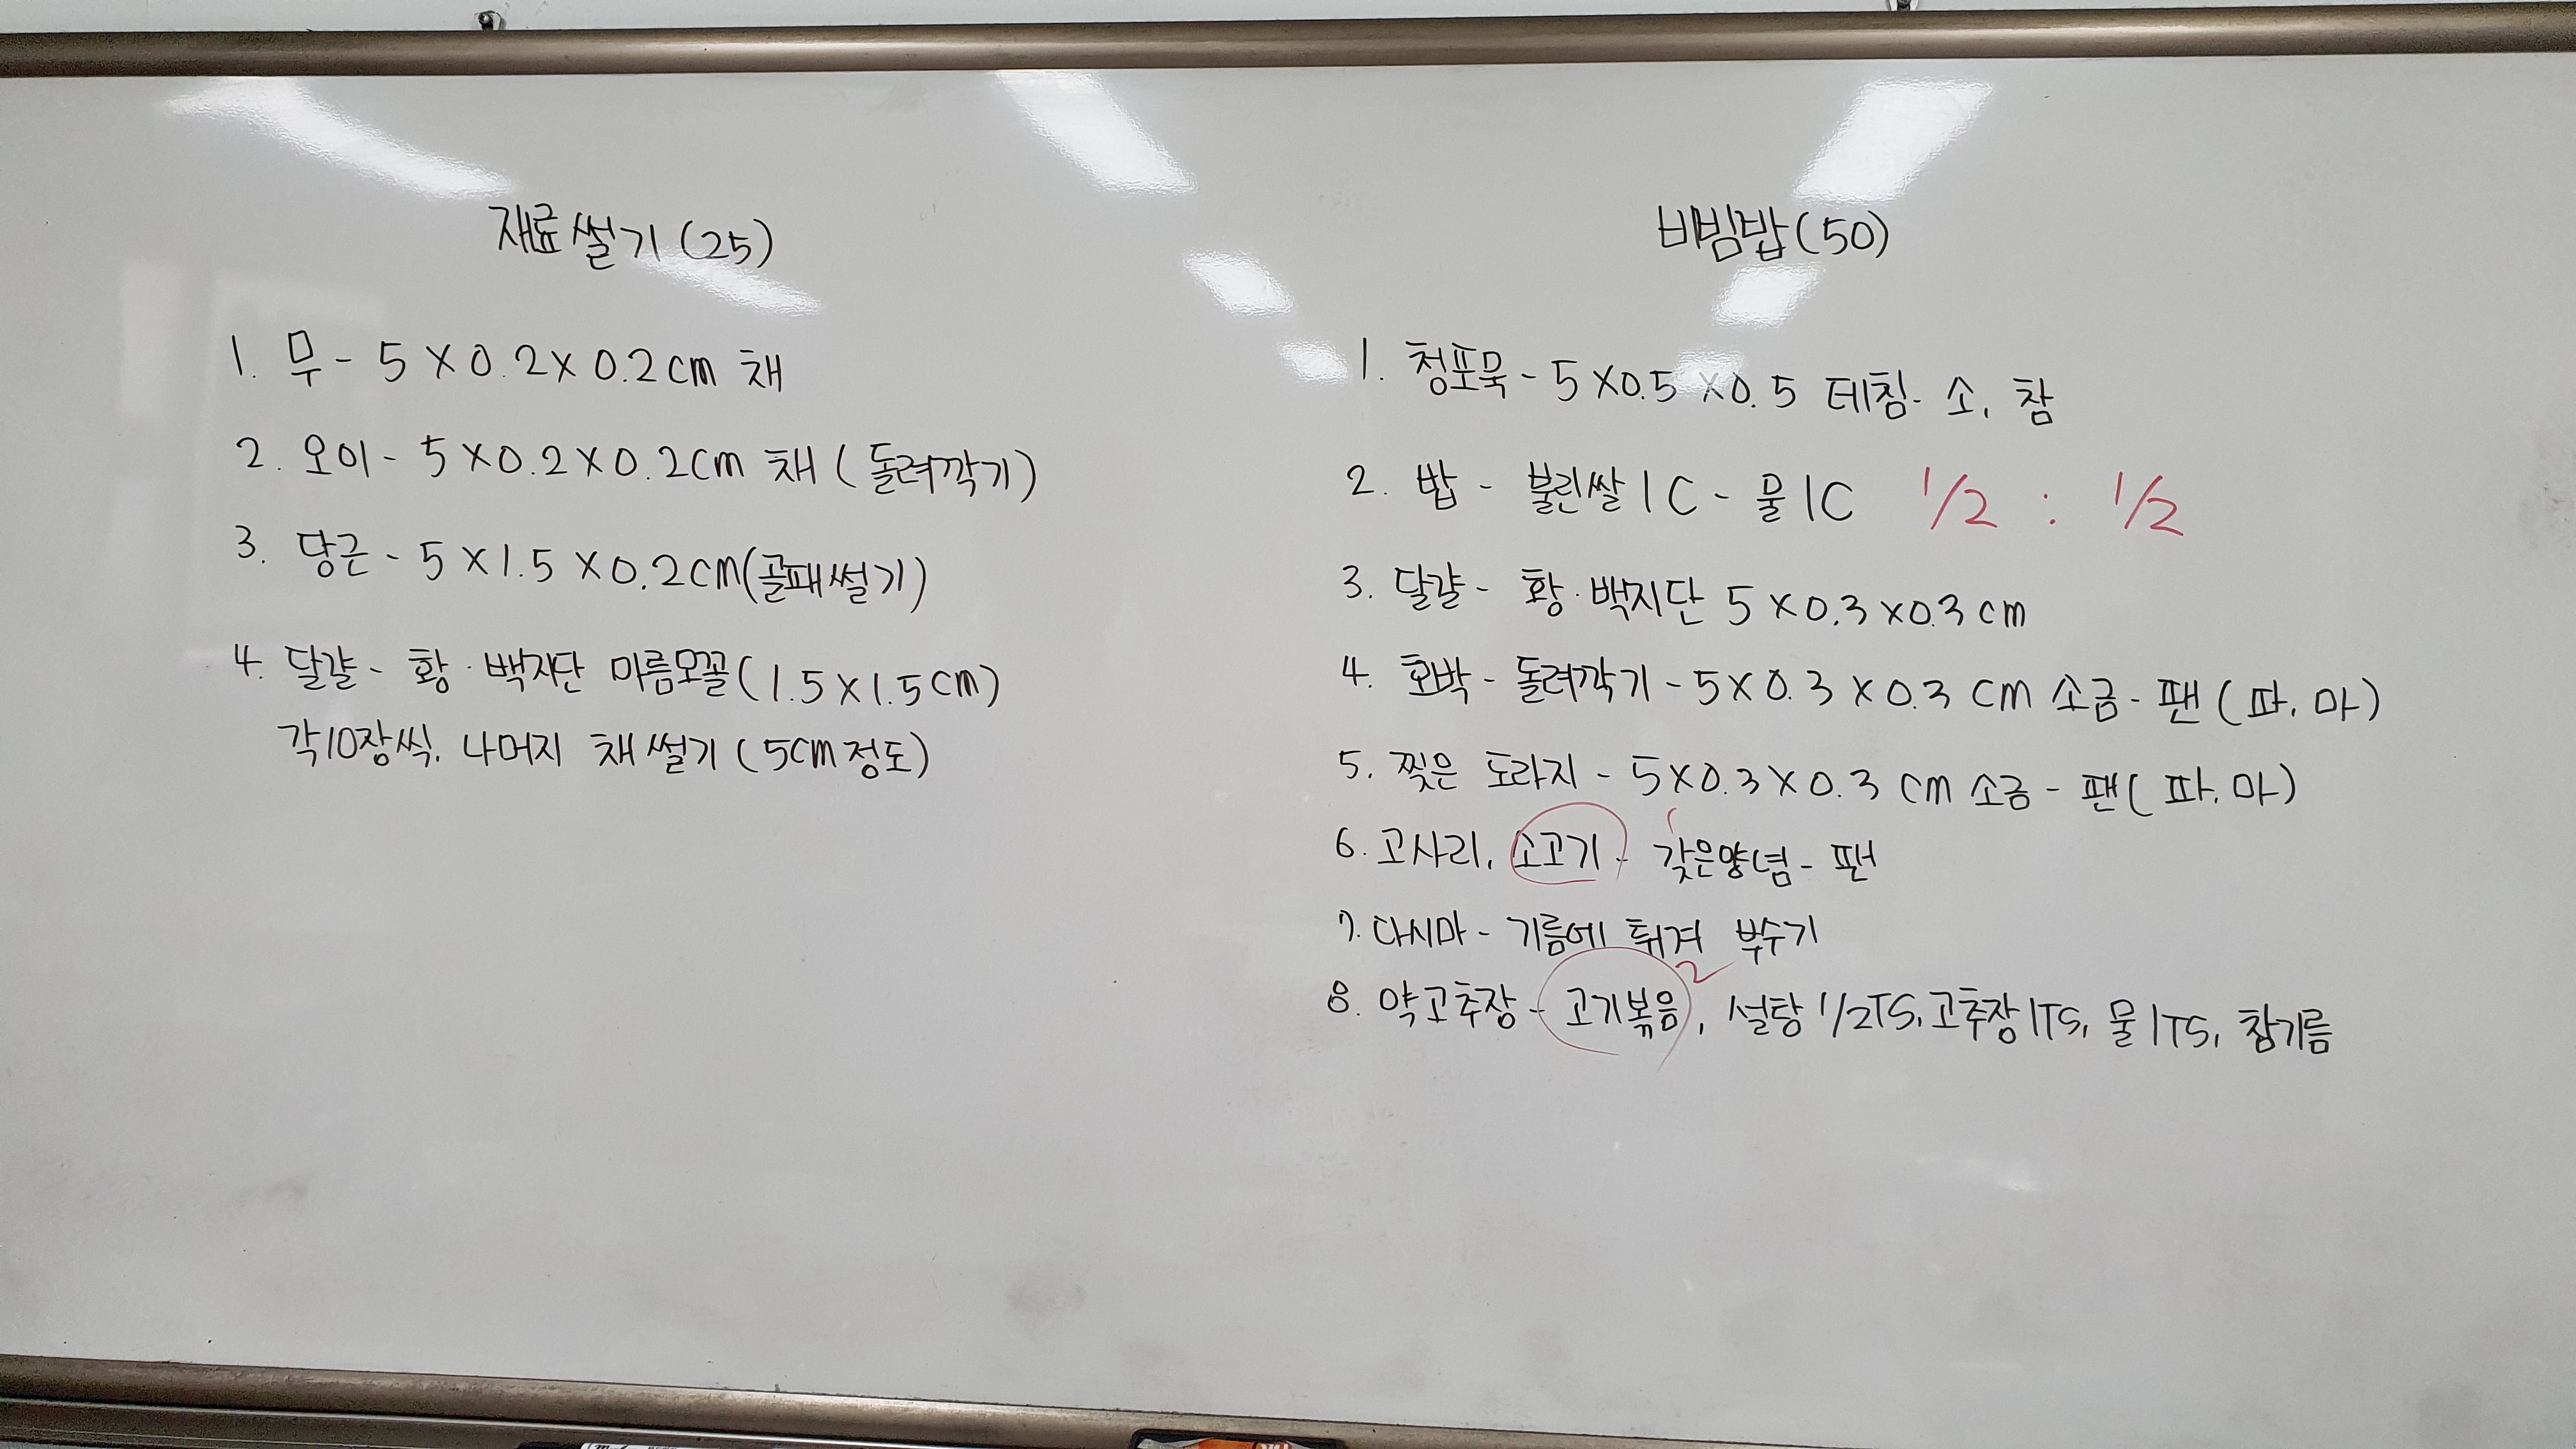 재료썰기(25)
1. 무 - 5 X 0.2 X 0.2cm 채
2. 오이 - 5 X 0.2 X 0.2cm 채 (돌려깍기)
3. 당근 - 5 X 1.5 X 0.2cm(골패썰기)
4. 달걀 - 황·백지단 마름모꼴(1.5 X 1.5cm)
각10장씩. 나머지 채썰기(5cm정도)
비빔밥(50)
1. 청포묵 - 5 X 0.5 X 0.5 데침 - 소, 참
2. 밥 - 불린쌀 1C - 물 1C 1/2 : 1/2
3. 달걀 - 황·백지단 5 X 0.3 X 0.3cm
4. 호박 - 돌려깍기 - 5 X 0.3 X 0.3 cm 소금 - 팬 (파, 마)
5. 찢은 도라지 - 5 X 0.3 X 0.3 cm 소금 - 팬 (파, 마)
6. 고사리, 소고기 - 갖은양념 - 팬
7. 다시마 - 기름에 튀겨 부수기
8. 약고추장 - 고기볶음, 2 설탕 1/2TS, 고추장 1TS, 물 1TS, 참기름